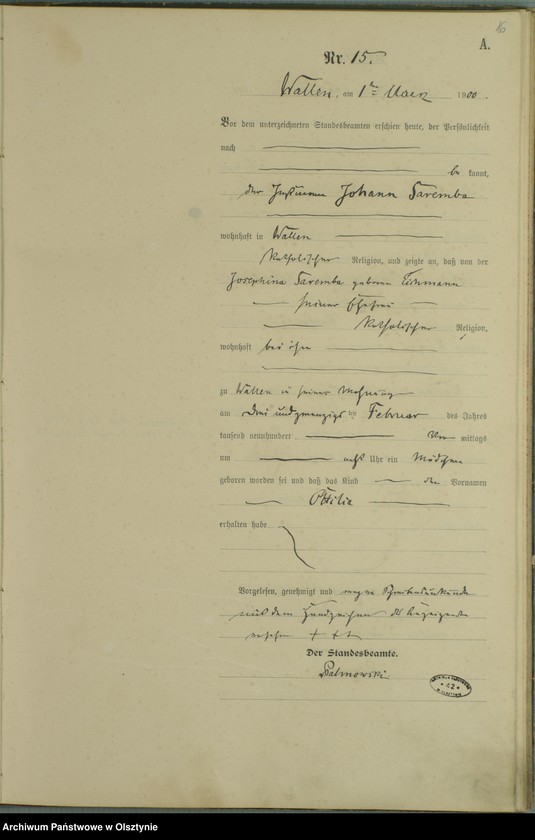 16
A.
Nr. 15.
Wallen, am 1ten Maerz 1900.
Vor dem unterzeichneten Standesbeamten erschien heute, der Persönlichkeit
nach
be kannt,
der Instmann Johann Saremba
wohnhaft in Wallen
katholischer Religion, und zeigte an, daß von der
Josephina Saremba geborene
seiner Ehefrau
katholischer Religion,
wohnhaft bei ihm
zu Wallen in seiner Wohnung
am drei und zwanzigsten Februar des Jahres
tausend neunhundert Vor mittags
um acht Uhr ein Mädchen
geboren worden sei und daß das Kind den Vornamen
Ottilie
erhalten habe
Vorgelesen, genehmigt und wegen Schreibensunkunde
mit dem Handzeichen des Anzeigenden
versehen + + +
Der Standesbeamte.
Palmowski
* 42 *
Archiwum Państwowe w Olsztynie